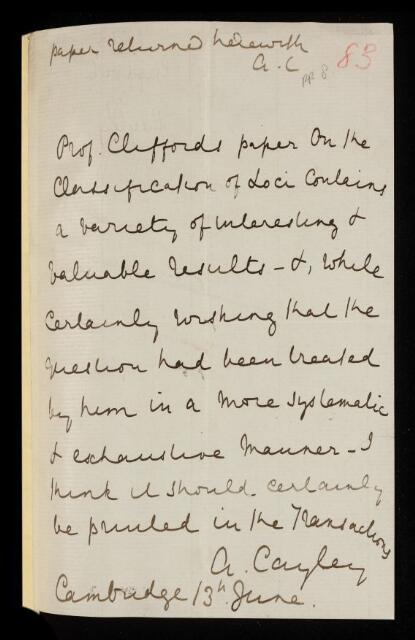 paper returned herewith
A. C
RR 8
83
Prof. Cliffords paper On the
Classification of Loci contains
a variety of interesting &
valuable results – &, while
certainly wishing that the
question had been treated
by him in a more systematic
& exhaustive manner – I
think it should certainly
be printed in the Transactions
A. Cayley
Cambridge 13th June.